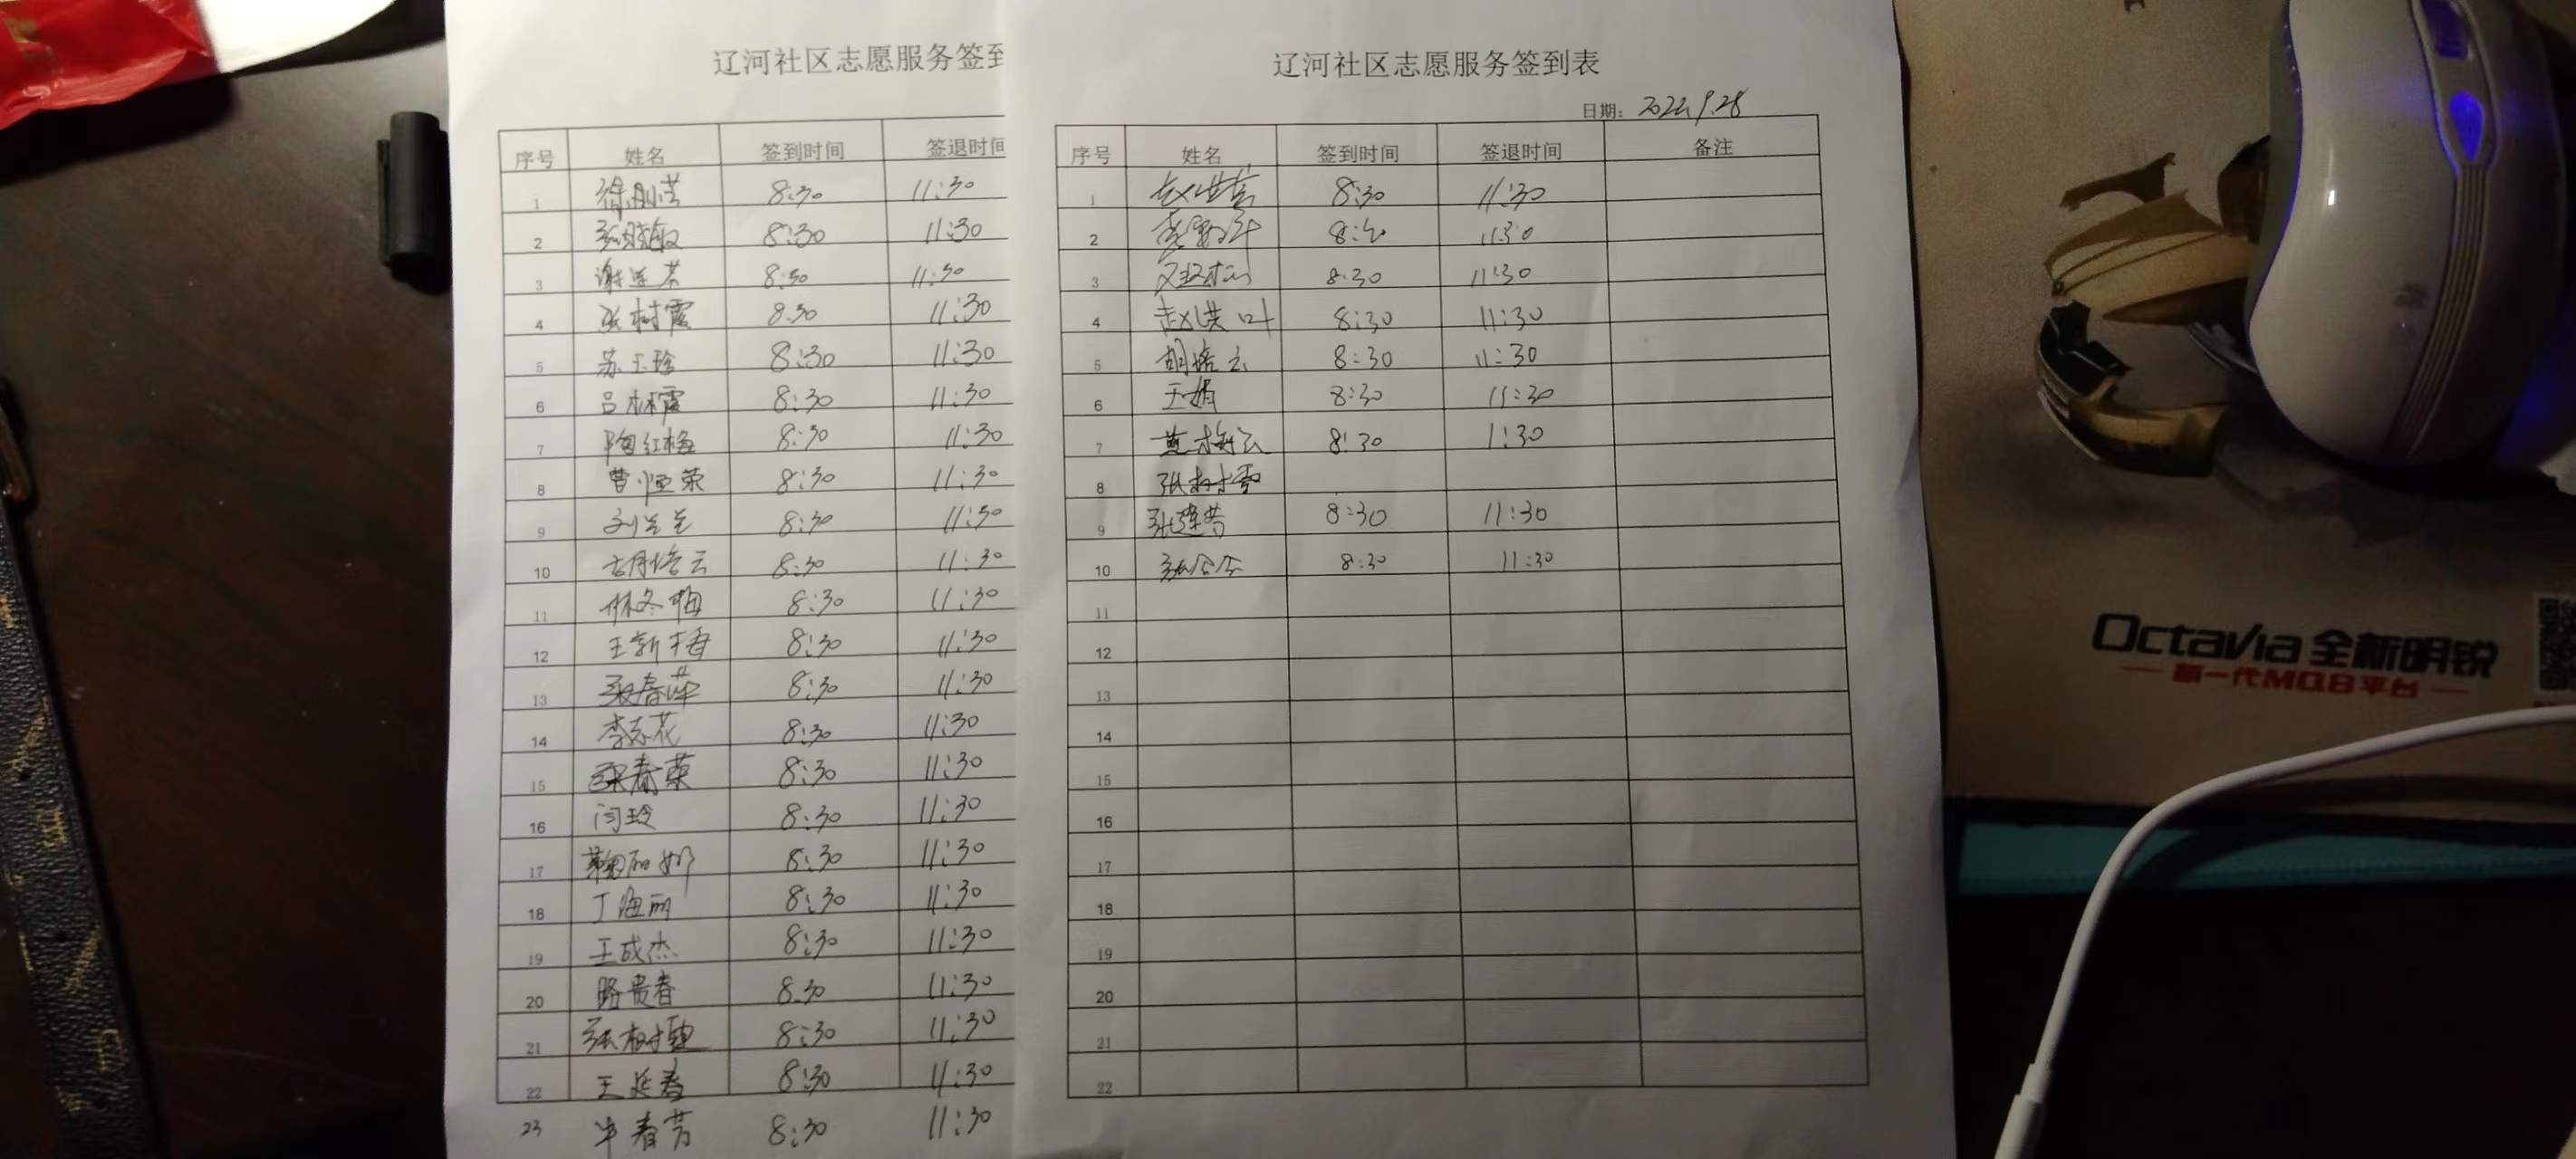 辽河社区志愿服务签到
序号 姓名 签到时间 签退时间
1 8:30 11:30
2 张晓敏 8:30 11:30
3 谢莲芳 8:30 11:30
4 张树霞 8.30 11:30
5 苏玉玲 8:30 11:30
6 吕林霞 8:30 11:30
7 陶红梅 8:30 11:30
8 曹恒荣 8:30 11:30
9 刘兰兰 8:30 11:30
10 胡培云 8:30 11:30
11 林冬梅 8:30 11:30
12 王新梅 8:30 11:30
13 张春萍 8:30 11:30
14 李东花 8:30 11:30
15 春荣 8:30 11:30
16 闫玲 8:30 11:30
17 鞠 8:30 11:30
18 丁海丽 8:30 11:30
19 王成杰 8:30 11:30
20 路贵春 8.30 11:30
21 张树 8:30 11:30
22 王延春 8:30 11:30
23 牛春芳 8:30 11:30
辽河社区志愿服务签到表
日期: 2022.9.28
序号 姓名 签到时间 签退时间 备注
1 8:30 11:30
2 11:30
3 8:30 11:30
4 赵洪叶 8:30 11:30
5 胡培云 8:30 11:30
6 王娟 8:30 11:30
7 黄梅云 8:30 1:30
8 张树雪
9 张莲芳 8:30 11:30
10 8:30 11:30
11
12
13
14
15
16
17
18
19
20
21
22
Octavia 全新明锐
新一代MQB平台